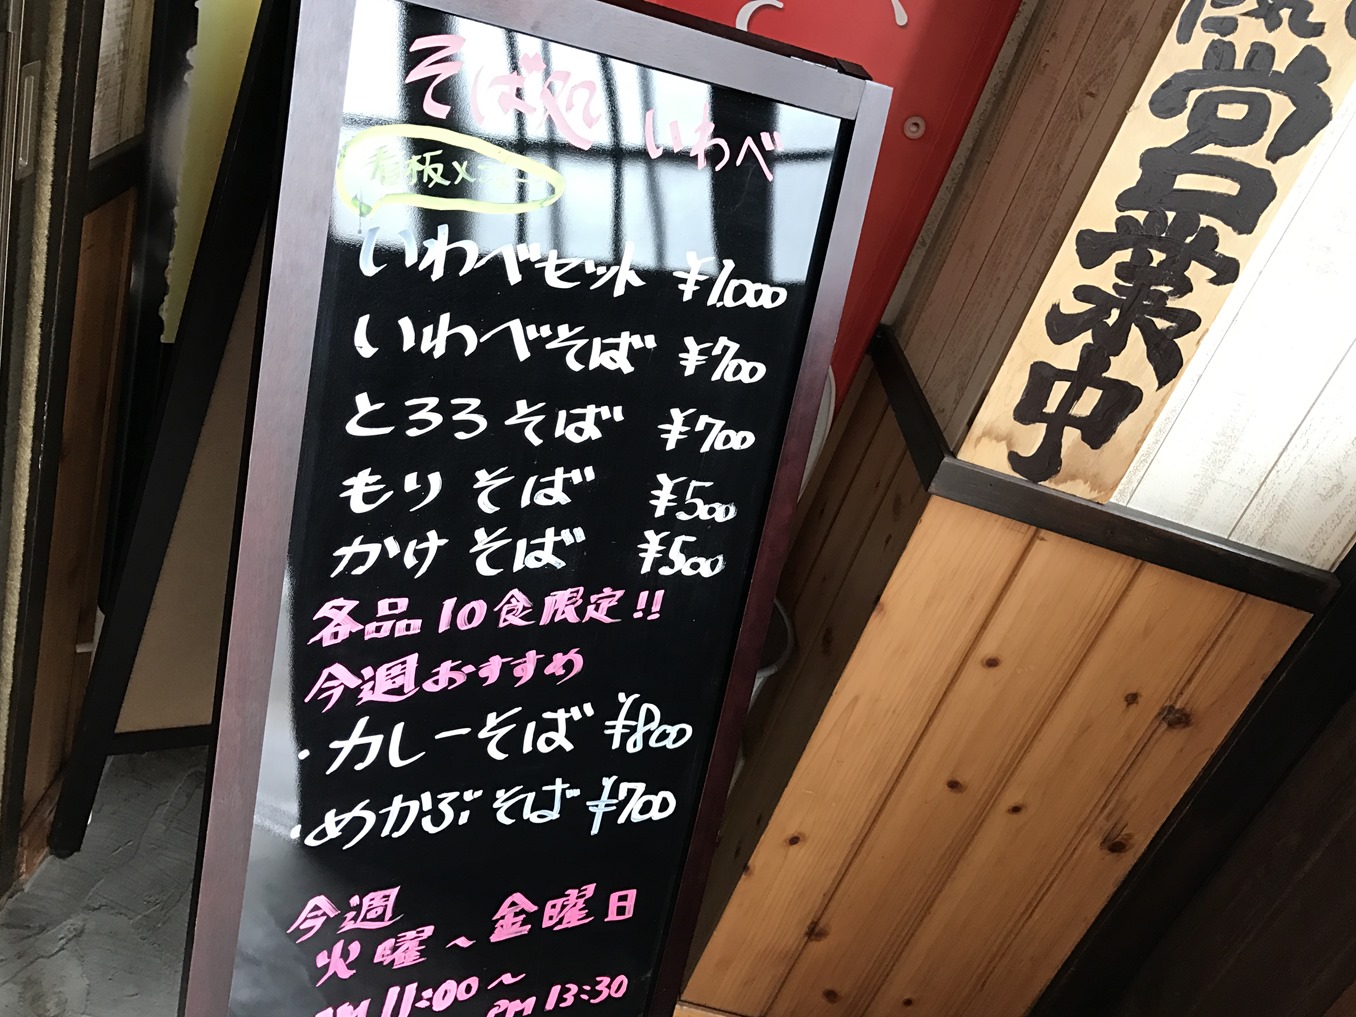 そば処 いわべ
看板メニュー
いわべセット ¥1,000
いわべそば ¥700
とろろそば ¥700
もりそば ¥500
かけそば ¥500
各品10食限定!!
今週おすすめ
・カレーそば ¥800
・めかぶそば ¥700
今週
火曜〜金曜日
AM 11:00〜
PM 13:30
営業中